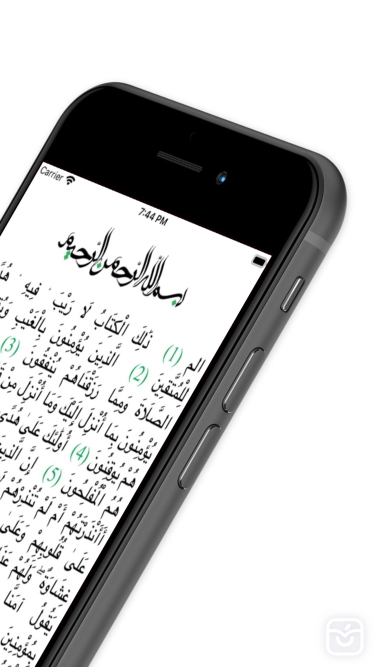 Carrier
7:44 PM
بسم الله الرحمن الرحيم
الم (1) ذَلِكَ الْكِتَابُ لَا رَيْبَ فِيهِ هُدًى
لِّلْمُتَّقِينَ (2) الَّذِينَ يُؤْمِنُونَ بِالْغَيْبِ
الصَّلَاةَ وَمِمَّا رَزَقْنَاهُمْ يُنفِقُونَ (3)
يُؤْمِنُونَ بِمَا أُنْزِلَ إِلَيْكَ وَمَا أُنْزِلَ مِنْ
هُمْ يُوقِنُونَ (4) أُولَئِكَ عَلَى هُدًى
هُمُ الْمُفْلِحُونَ (5) إِنَّ الَّذِينَ
أَأَنْذَرْتَهُمْ أَمْ لَمْ تُنْذِرْهُمْ
عَلَى قُلُوبِهِمْ وَعَلَى
غِشَاوَةٌ وَلَهُمْ
يَقُولُ آمَنَّا
بِمُؤْمِنِينَ